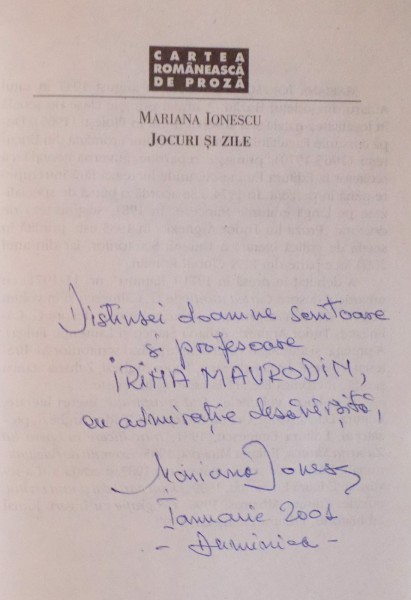 CARTEA
ROMÂNEASCĂ
DE PROZĂ
MARIANA IONESCU
JOCURI ŞI ZILE
Distinsei doamne scriitoare
și profesoare
IRINA MAVRODIN,
cu admirație desăvîrșită,
Mariana Ionescu
Ianuarie 2001
- Duminica -